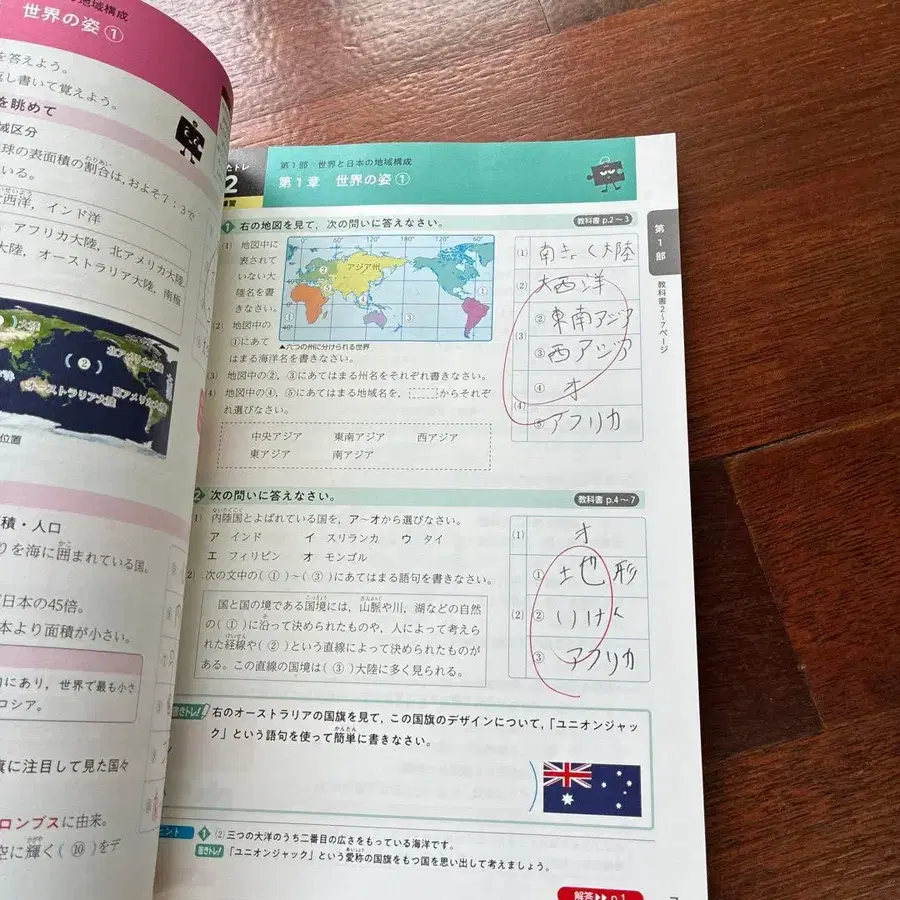 の地域構成
世界の姿①
を答えよう。
返し書いて覚えよう。
を眺めて
域区分
球の表面積の割合は,およそ7:3で
いる。
大西洋,インド洋
アフリカ大陸,北アメリカ大陸,
大陸,オーストラリア大陸,南極
大陸
(②)
北アメリカ大陸
南アメリカ大陸
オーストラリア大陸
位置
積・人口
りを海に囲まれている国。
日本の45倍。
本より面積が小さい。
内にあり,世界で最も小さ
コシア。
に注目して見た国々
ロンブスに由来。
空に輝く(⑩)をデ
トレ
2
練習
第1部 世界と日本の地域構成
第1章 世界の姿①
1 右の地図を見て,次の問いに答えなさい。
教科書 p.2~3
(1) 地図中に
表されて
いない大
陸名を書
きなさい。
(2) 地図中の
①にあて
はまる海洋名を書きなさい。
0° 60° 120° 180° 120° 60°
アジア州
▲六つの州に分けられる世界
(3) 地図中の②,③にあてはまる州名をそれぞれ書きなさい。
(4) 地図中の④,⑤にあてはまる地域名を,からそれぞ
れ選びなさい。
中央アジア 東南アジア 西アジア
東アジア 南アジア
(1) 南きょく大陸
(2) 大西洋
(3) ② 東南アジア
③ 西アジア
(4) ④ オ
⑤ アフリカ
第1部
教科書2~7ページ
2 次の問いに答えなさい。
教科書 p.4~7
(1) 内陸国とよばれている国を,ア~オから選びなさい。
ないりくこく
ア インド イ スリランカ ウ タイ
エ フィリピン オ モンゴル
(2) 次の文中の(①)~(③)にあてはまる語句を書きなさい。
国と国の境である国境には,山脈や川,湖などの自然
の(①)に沿って決められたものや,人によって考えら
れた経線や(②)という直線によって決められたものが
ある。この直線の国境は(③)大陸に多く見られる。
(1) オ
(2) ① 土地形
②
③ アフリカ
書きトレ! 右のオーストラリアの国旗を見て,この国旗のデザインについて,「ユニオンジャッ
ク」という語句を使って簡単に書きなさい。
ヒント 1 (2)三つの大洋のうち二番目の広さをもっている海洋です。
書きトレ! 「ユニオンジャック」という愛称の国旗をもつ国を思い出して考えましょう。
解答▶▶p.1
7